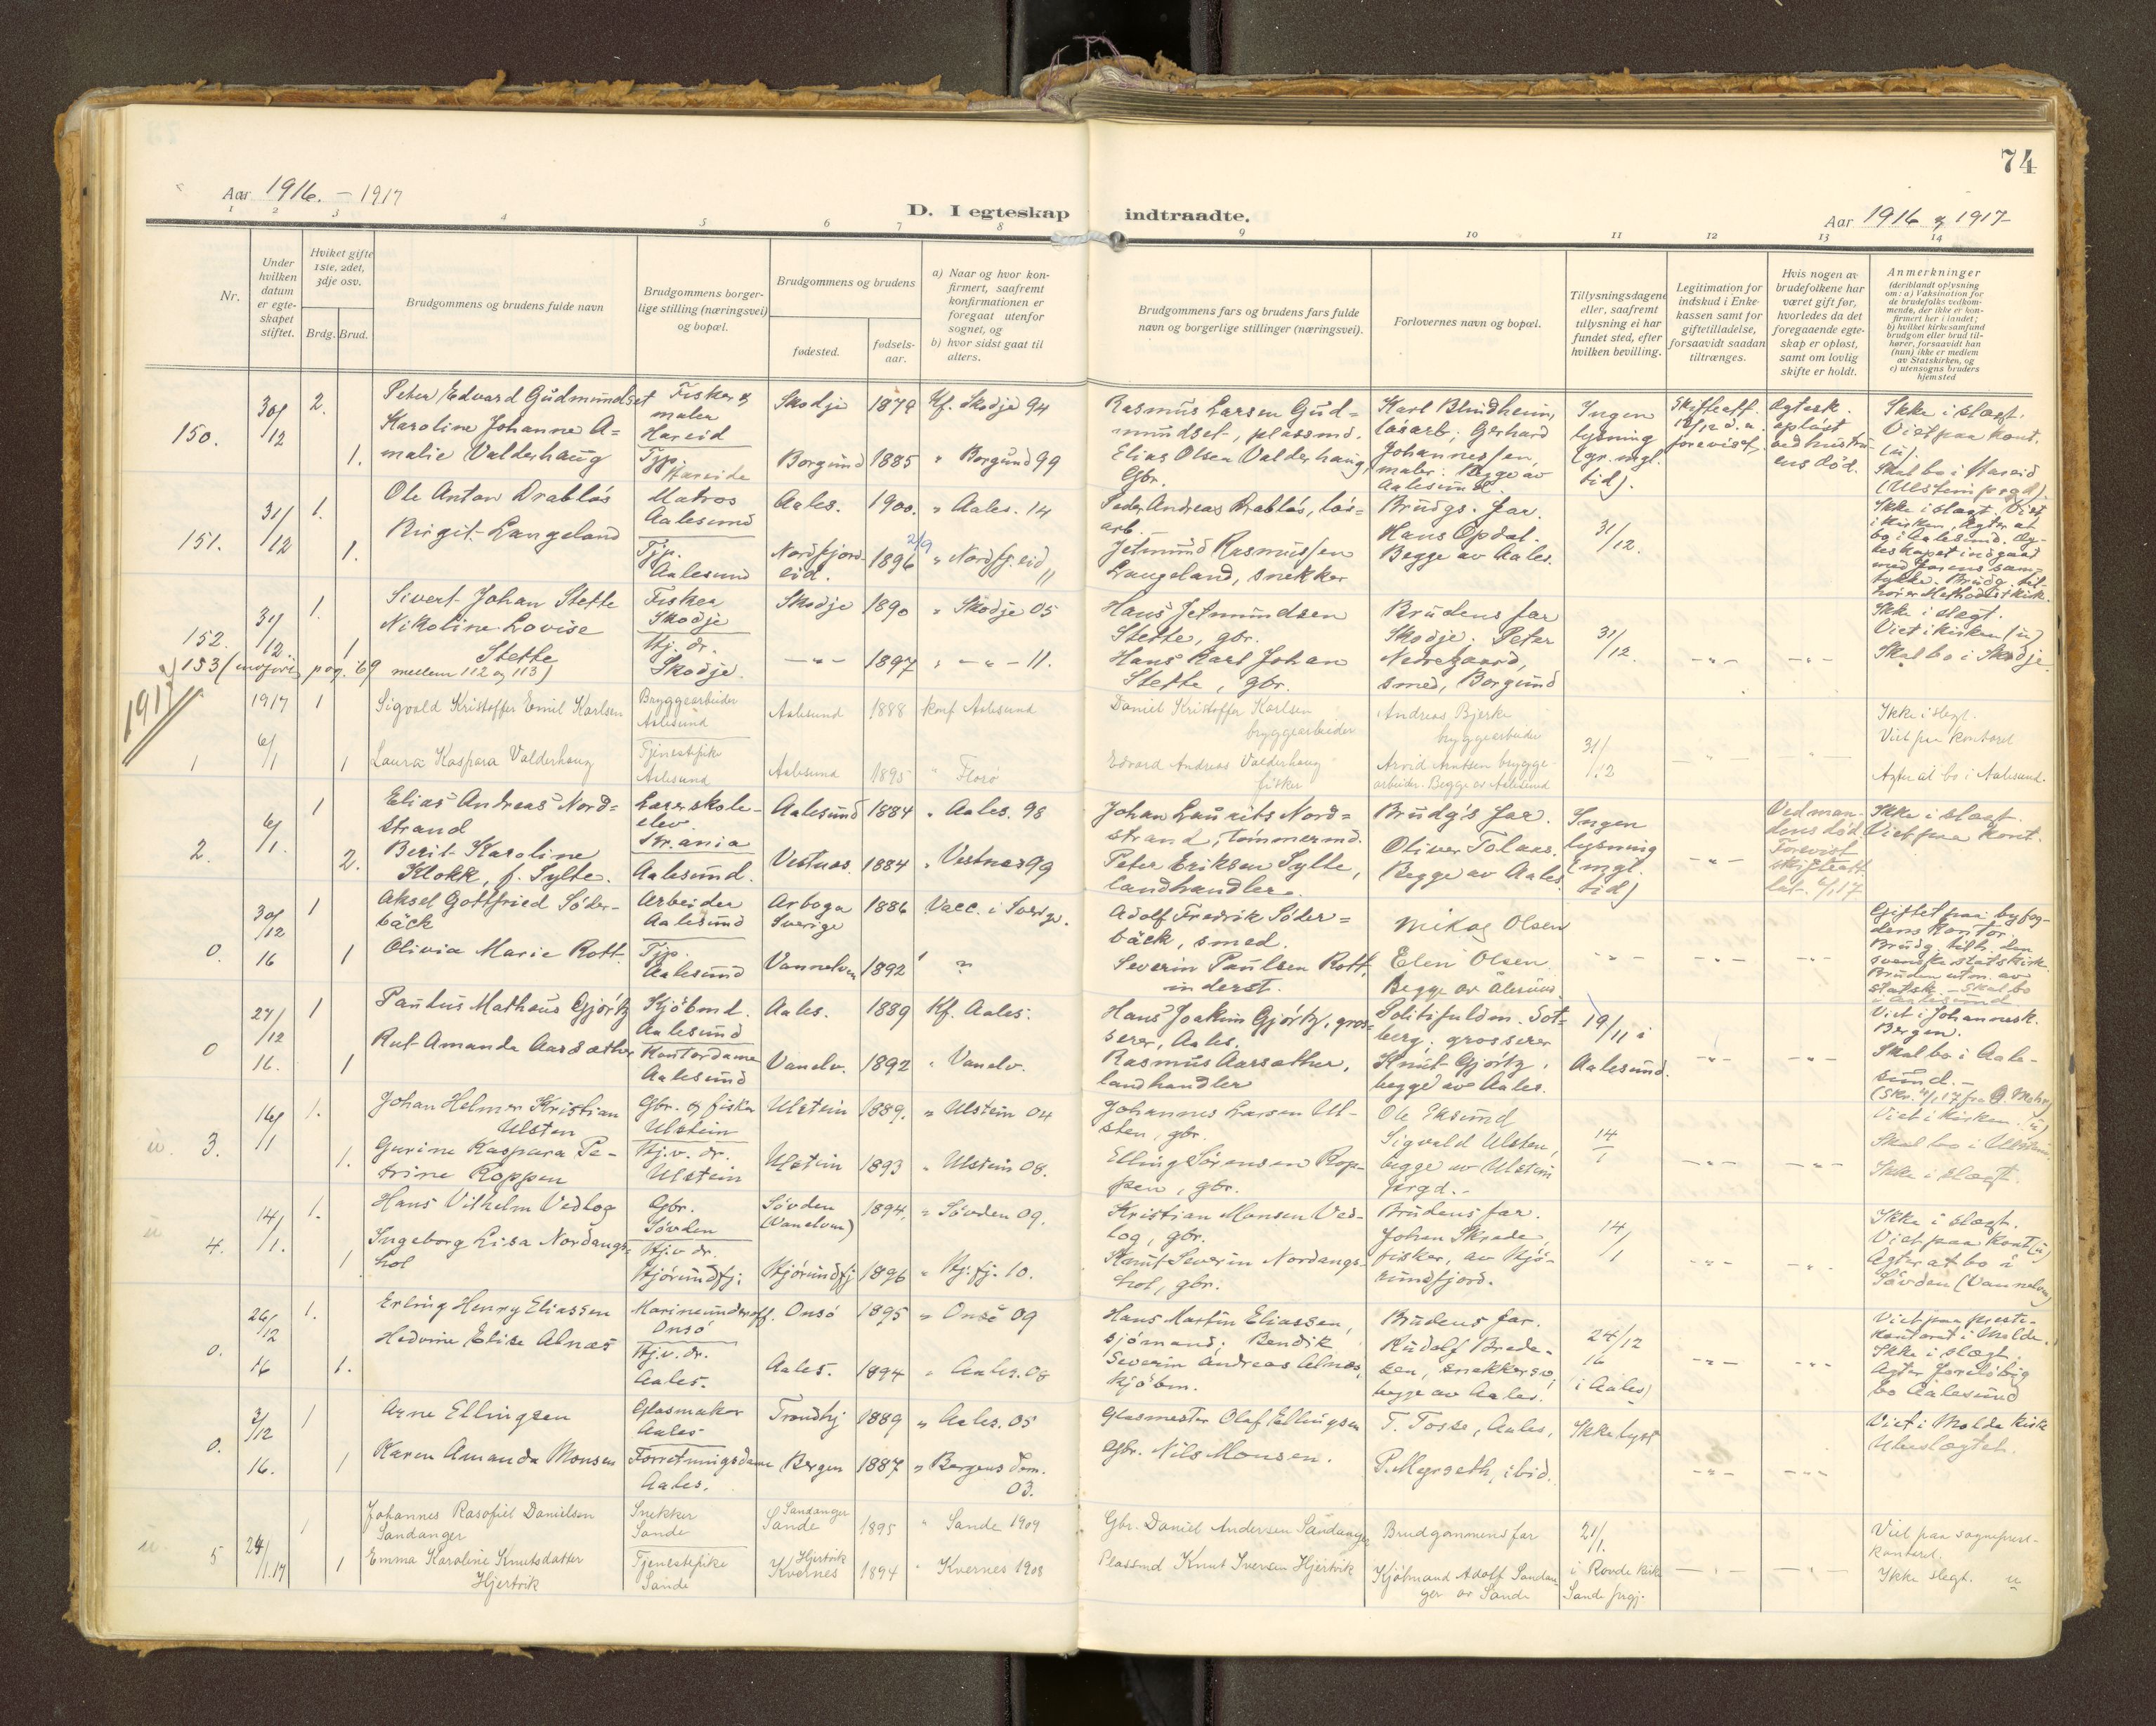 74
Aar 1916. - 1917
D. I egteskap indtraadte.
Aar 1916 & 1917
1 2 3 4 5 6 7 8 9 10 11 12 13 14
Nr.
Under hvilken datum er egteskapet stiftet.
Hviket gifte 1ste, 2det, 3dje osv.
Brdg. Brud.
Brudgommens og brudens fulde navn
Brudgommens borgerlige stilling (næringsvei) og bopæl.
Brudgommens og brudens
fødested.
fødselsaar.
a) Naar og hvor konfirmert, saafremt konfirmationen er foregaat utenfor sognet, og
b) hvor sidst gaat til alters.
Brudgommens fars og brudens fars fulde navn og borgerlige stillinger (næringsvei).
Forlovernes navn og bopæl.
Tillysningsdagene eller, saafremt tillysning ei har fundet sted, efter hvilken bevilling.
Legitimation for indskud i Enkekassen samt for giftetilladelse, forsaavidt saadan tiltrænges.
Hvis nogen av brudefolkene har været gift før, hvorledes da det foregaaende egteskap er opløst, samt om lovlig skifte er holdt.
Anmerkninger
(deriblandt oplysning om: a) Vaksination for de brudefolks vedkommende, der ikke er konfirmert her i landet; b) hvilket kirkesamfund brudgom eller brud tilhører, forsaavidt han (hun) ikke er medlem av Statskirken, og c) utensogns bruders hjemsted
150. 30/12 2. Peter Edvard Gudmundset Fisker & maler Hareid Skodje 1879 Kf. Skodje 94
1. Karoline Johanne Amalie Valderhaug Tjp. Hareide Borgund 1885 " Borgund 99
Rasmus Larsen Gudmundset, plassmd.
Elias Olsen Valderhaug Gbr.
Karl Blindheim, løsarb; Gerhard Johannessen, maler. Begge av Aalesund.
Ingen lysning (gr. mgl. tid).
Skifteatt. 12/12 d. a. forevist.
Egtesk. opløst ved hustruens død.
Ikke i slægt. Viet paa kont. (u). Skal bo i Hareid (Ulstein prgd).
151. 31/12 1. Ole Anton Drabløs Matros Aalesund Aales. 1900. " Aales. 14
1. Birgit Langeland Tjp. Aalesund Nordfjordeid. 1896 2/9 " Nordfj. eid 11
Peder Andreas Drabløs, løsarb.
Jetmund Rasmussen Langeland, snekker
Brudgs. far. Hans Opdal. Begge av Aales.
31/12.
Ikke i slægt. Viet i kirken. Agter at bo i Aalesund. Egteskapet indgaad med farens samtykke. Brudg. tilhører Methodistkirk.
152. 31/12. 1. Sivert Johan Stette Fisker Skodje Skodje 1890 " Skodje 05
1 Nikoline Lovise Stette Hj. dr. Skodje. -"- 1897 " -"- 11.
Hans Jetmundsen Stette, gbr.
Hans Karl Johan Stette, gbr.
Brudens far Skodje. Peter Nedregaard, smed, Borgund
31/12. -"- -"-
Ikke i slegt. Viet i kirken (u) Skal bo i Skodje.
153 (indført pag. 69 mellem 112 og 113)
1917
1 1917 6/1 1 Sigvald Kristoffer Emil Karlsen Bryggearbeider Aalesund Aalesund 1888 konf Aalesund
1 Laura Kaspara Valderhaug Tjenestepike Aalesund Aalesund 1895 " Florø
Daniel Kristoffer Karlsen bryggearbeider
Edvard Andreas Valderhaug fisker
Andreas Bjerke bryggearbeider
Arvid Arntsen bryggearbeider. Begge av Aalesund
31/12 " "
Ikke i slegt. Viet paa kontoret Agter at bo i Aalesund.
2. 6/1. 1 Elias Andreas Nordstrand Lærerskoleelev Kr.ania Aalesund 1884 " Aales. 98
2. Berit Karoline Klokk, f. Sylte. Aalesund. Vestnes. 1884 " Vestnes 99
Johan Laurits Nordstrand, tømmermd.
Peter Eriksen Sylte, landhandler.
Brudg's far. Oliver Tolaas. Begge av Aales.
Ingen lysning (mgl. tid) -"-
Ved mandens død Forevist skifteatt.
Ikke i slægt. Viet paa kont.
0. 30/12 16 1 Aksel Gottfried Söderbäck Arbeider Aalesund Arboga Sverige 1886 Vacc. i Sverige.
1 Olivia Marie Rott. Tjp. Aalesund Vannelven 1892 "
Adolf Fredrik Söderbäck, smed.
Severin Paulsen Rott, inderst.
Nikag Olsen Elen Olsen Begge av Ålesund.
-"- -"- -"-
Giftet paa byfogdens kontor. Brudg. tilh. den svenske statskirk. Bruden utm. av statsk. - Skal bo i Aalesund
0 27/12 16. 1 Paulus Mathæus Gjørtz Kjøbmd. Aalesund Aales. 1889 Kf. Aales.
1 Rut Amanda Aarsæther Kontordame Aalesund Vanelv. 1892 " Vanelv.
Hans Joakim Gjørtz, grosserer, Aales.
Rasmus Aarsæther, landhandler
Politifuldm. Sotberg; grosserer Knut Gjørtz, begge av Aales.
19/11 i Aalesund. -"- -"-
Viet i Johannesk. Bergen. Skal bo i Aalesund.-
u. 3. 16/1 1. Johan Helmer Kristian Ulsten Gbr. & fisker Ulstein Ulstein 1889. " Ulstein 04
1. Gurine Kaspara Petrine Koppen Hj.v. dr. Ulstein Ulstein 1893 " Ulstein 08.
Johannes Larsen Ulsten, gbr.
Elling Sørensen Koppen, gbr.
Ole Eksund Sigvald Ulsten, begge av Ulstein prgd.-
14/1 -"- -"-
Viet i kirken. (u) Skal bo i Ulstein. Ikke i slægt.
u 4. 14/1. 1. Hans Vilhelm Vedlog Gbr. Søvden Søvden (Vanelven) 1894. " Søvden 09.
1 Ingeborg Lisa Nordangshol Hj.v dr. Hjørundfj. Hjørundfj 1896 " Hj. fj. 10.
Kristian Monsen Vedlog, gbr.
Knut Severin Nordangshol, gbr.
Brudens far. Johan Skrede, fisker, av Hjørundfjord.
14/1 -"- -"-
Ikke i slægt. Viet paa kont (u) Agter at bo i Søvden (Vannelven)
0. 26/12 16 1. Erling Henry Eliassen Marineunderoff. Onsø Onsø 1895 " Onsø 09
1. Hedvine Elise Alnæs Hj.v. dr. Aales. Aales. 1894 " Aales. 08
Hans Martin Eliassen, sjømand; Bendik Severin Andreas Alnæs, kjøbm.
Brudens far. Rudolf Bredesen, snekkersv, begge av Aales.
24/12 16 (i Aales) -"- -"-
Viet paa prestekontoret i Molde. Ikke i slægt. Agter foreløbig bo Aalesund
0. 3/12 16. 1 Arne Ellingsen Glasmaker Aales. Trondhj 1889 " Aales. 05
1 Karen Amanda Monsen Forretningsdame Aales. Bergen 1887 " Bergens dom. 03.
Glasmester Olaf Ellingsen
Gbr. Nils Monsen.
T. Tosse, Aales. P. Myrseth, ibid.
Ikke lyst -"- -"-
Viet i Molde kirk Ubeslægtet.
u. 5 24/1.17 1 Johannes Rasofiel Danielsen Sandanger Snekker Sande Sandanger Sande 1895 " Sande 1909
1 Emma Karoline Knutsdatter Hjertvik Tjenestepike Sande Hjertvik Kvernes 1894 " Kvernes 1908
Gbr. Daniel Andersen Sandanger
Plassmd Knut Iversen Hjertvik
Brudgommens far
Kjøbmand Adolf Sandanger av Sande
21/1. i Rovde kirke Sande prgj. -"- -"-
Viet paa sogneprestkontoret. Ikke slegt. u